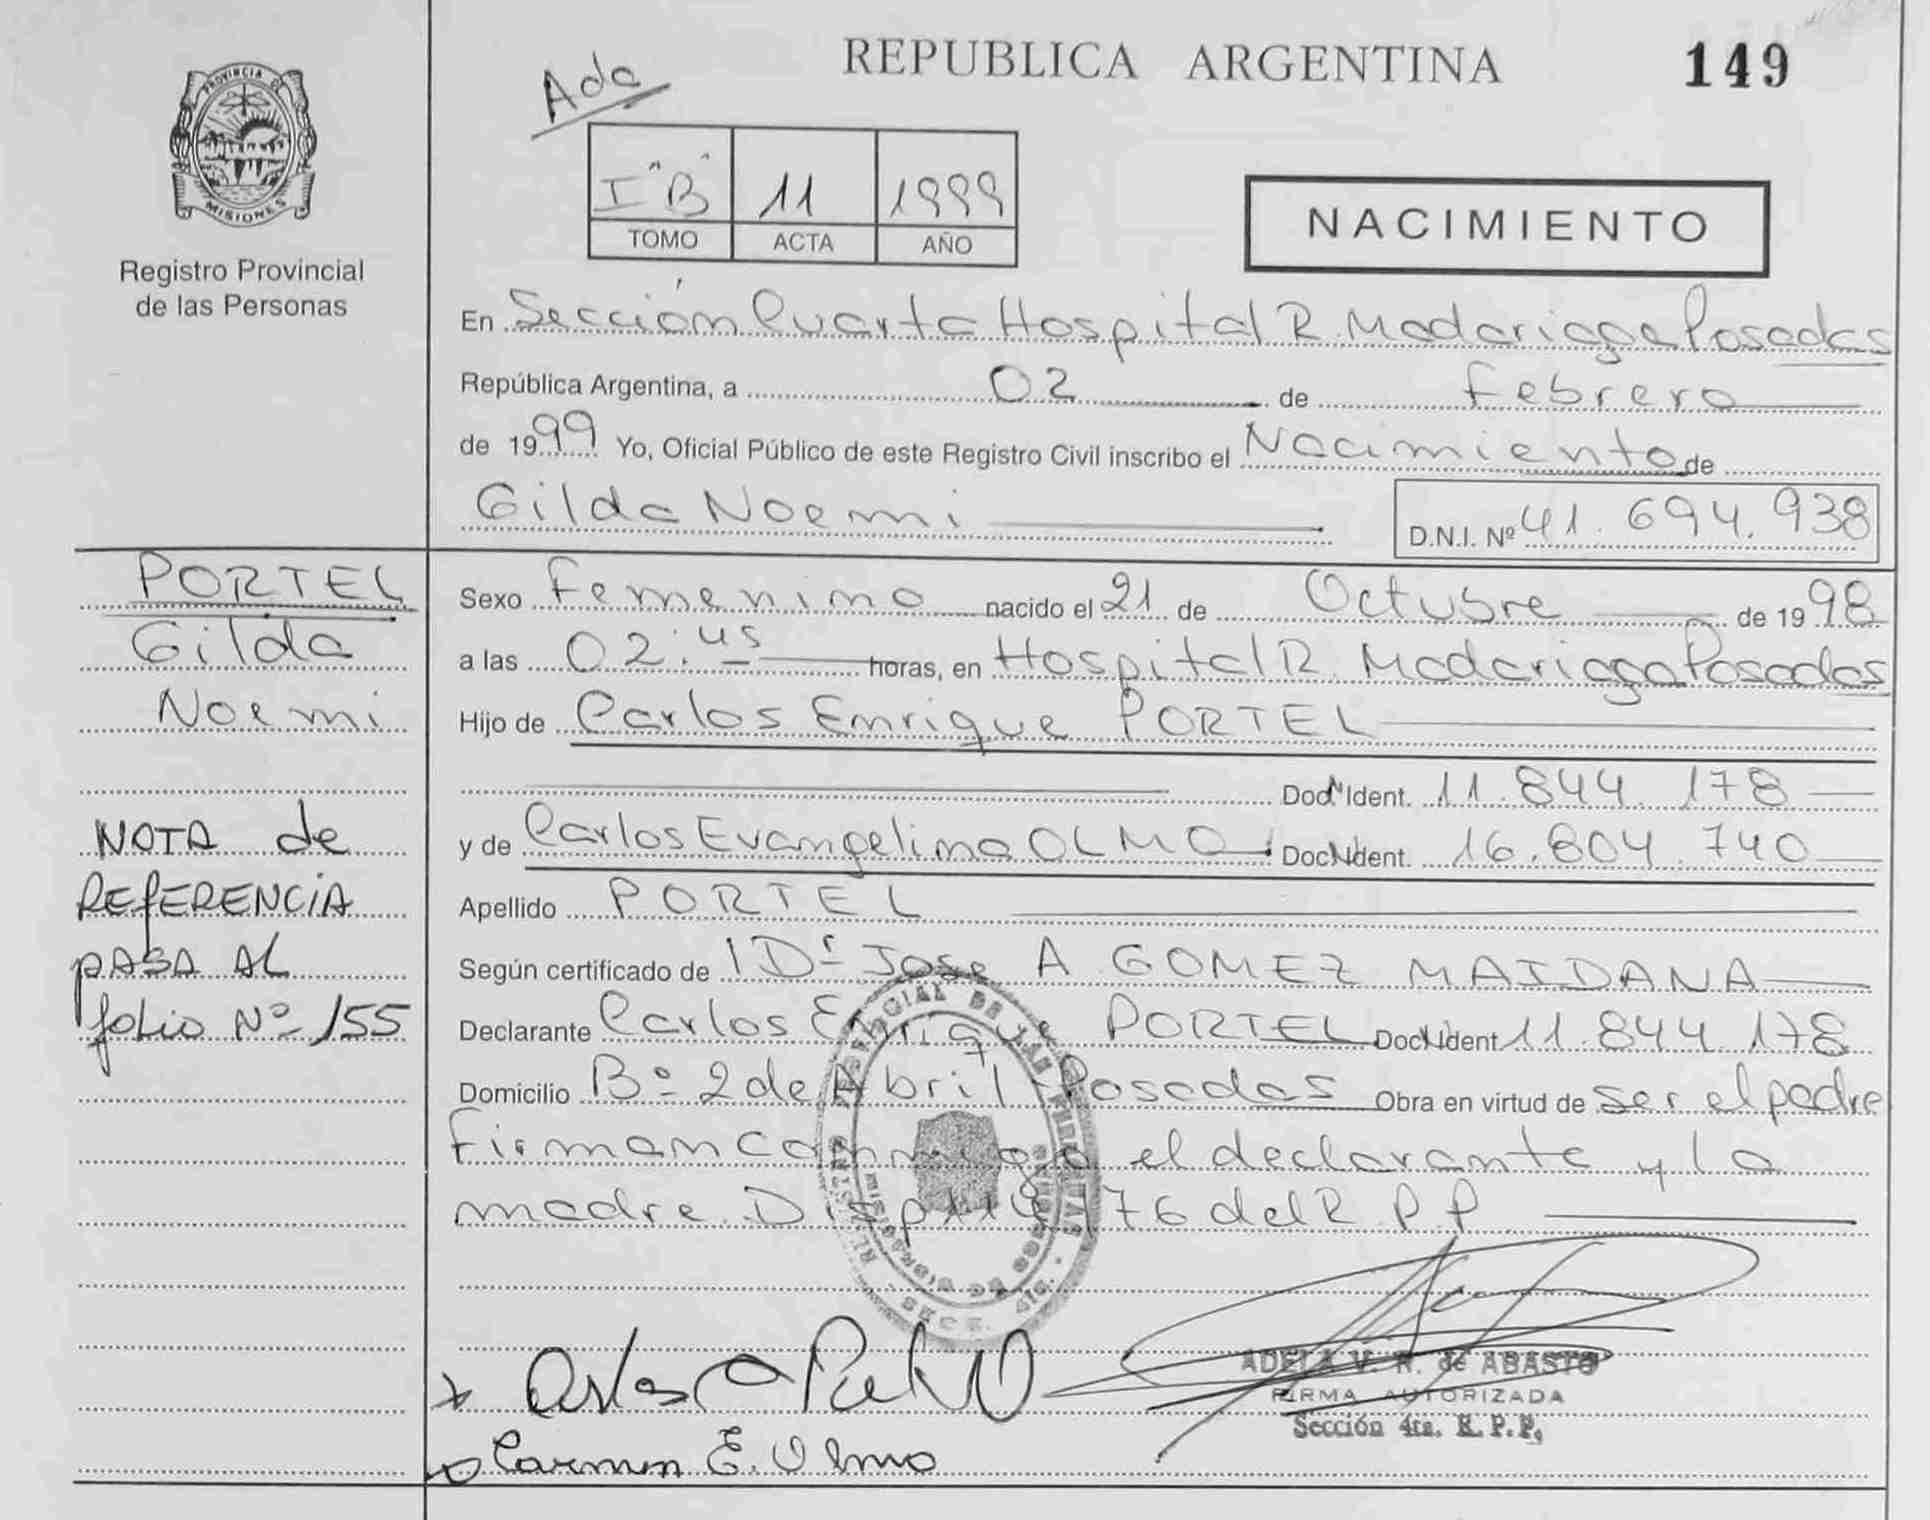 REPUBLICA ARGENTINA
149
Ada
PROVINCIA DE
MISIONES
Registro Provincial
de las Personas
I "B" 11 1999
TOMO ACTA AÑO
NACIMIENTO
En Sección Cuarta Hospital R. Madariaga Posadas
República Argentina, a 02 de Febrero
de 1999 Yo, Oficial Público de este Registro Civil inscribo el Nacimiento de
Gilda Noemi D.N.I. Nº 41.694.938
PORTEL
Gilda
Noemi
NOTA de
REFERENCIA
PASA AL
folio Nº 155
Sexo Femenino nacido el 21 de Octubre de 1998
a las 02:45 horas, en Hospital R. Madariaga Posadas
Hijo de Carlos Enrique PORTEL
Doc. Ident. 11.844.178
y de Carlos Evangelina OLMO Doc. Ident. 16.804.740
Apellido PORTEL
Según certificado de Dr Jose A GOMEZ MAIDANA
Declarante Carlos Enrique PORTEL Doc. Ident 11.844.178
Domicilio Bº 2 de Abril Posadas Obra en virtud de ser el padre
Firman conmigo el declarante y la
madre. Disp 114/76 del R.P.P.
Carmen E. Olmo
ADELA V. R. de ABASTO
FIRMA AUTORIZADA
Sección 4ta. R.P.P.